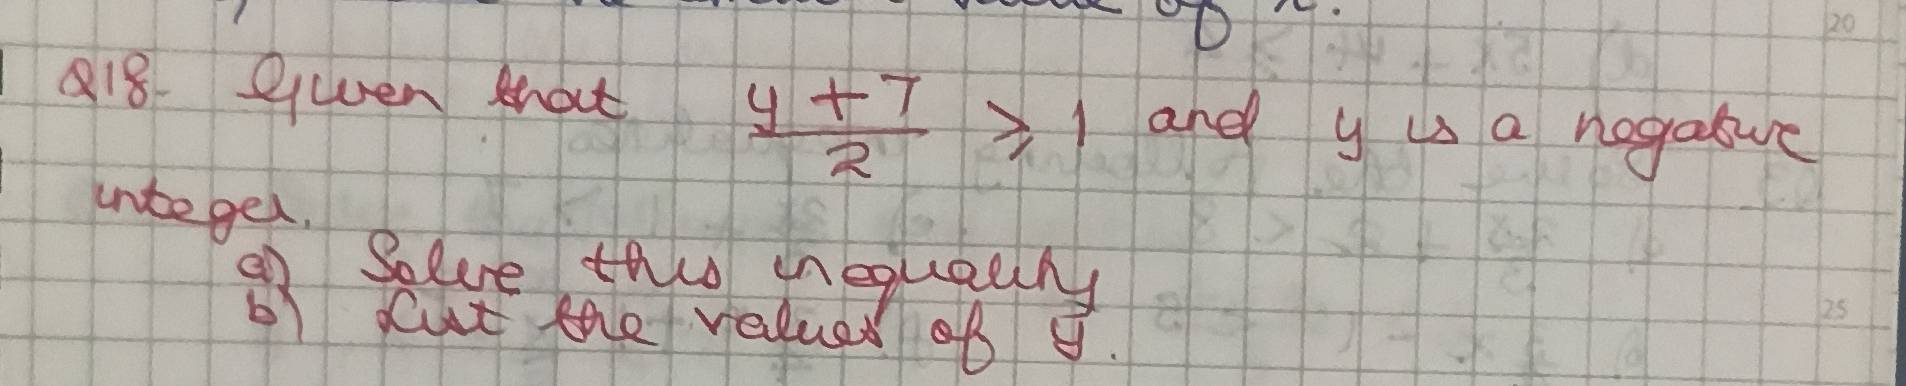 value of x.
20
Q18. Given that (y + 7)/2 ⩾ 1 and y is a negative
integer.
a) Solve this inequality
b) List the values of y.
25